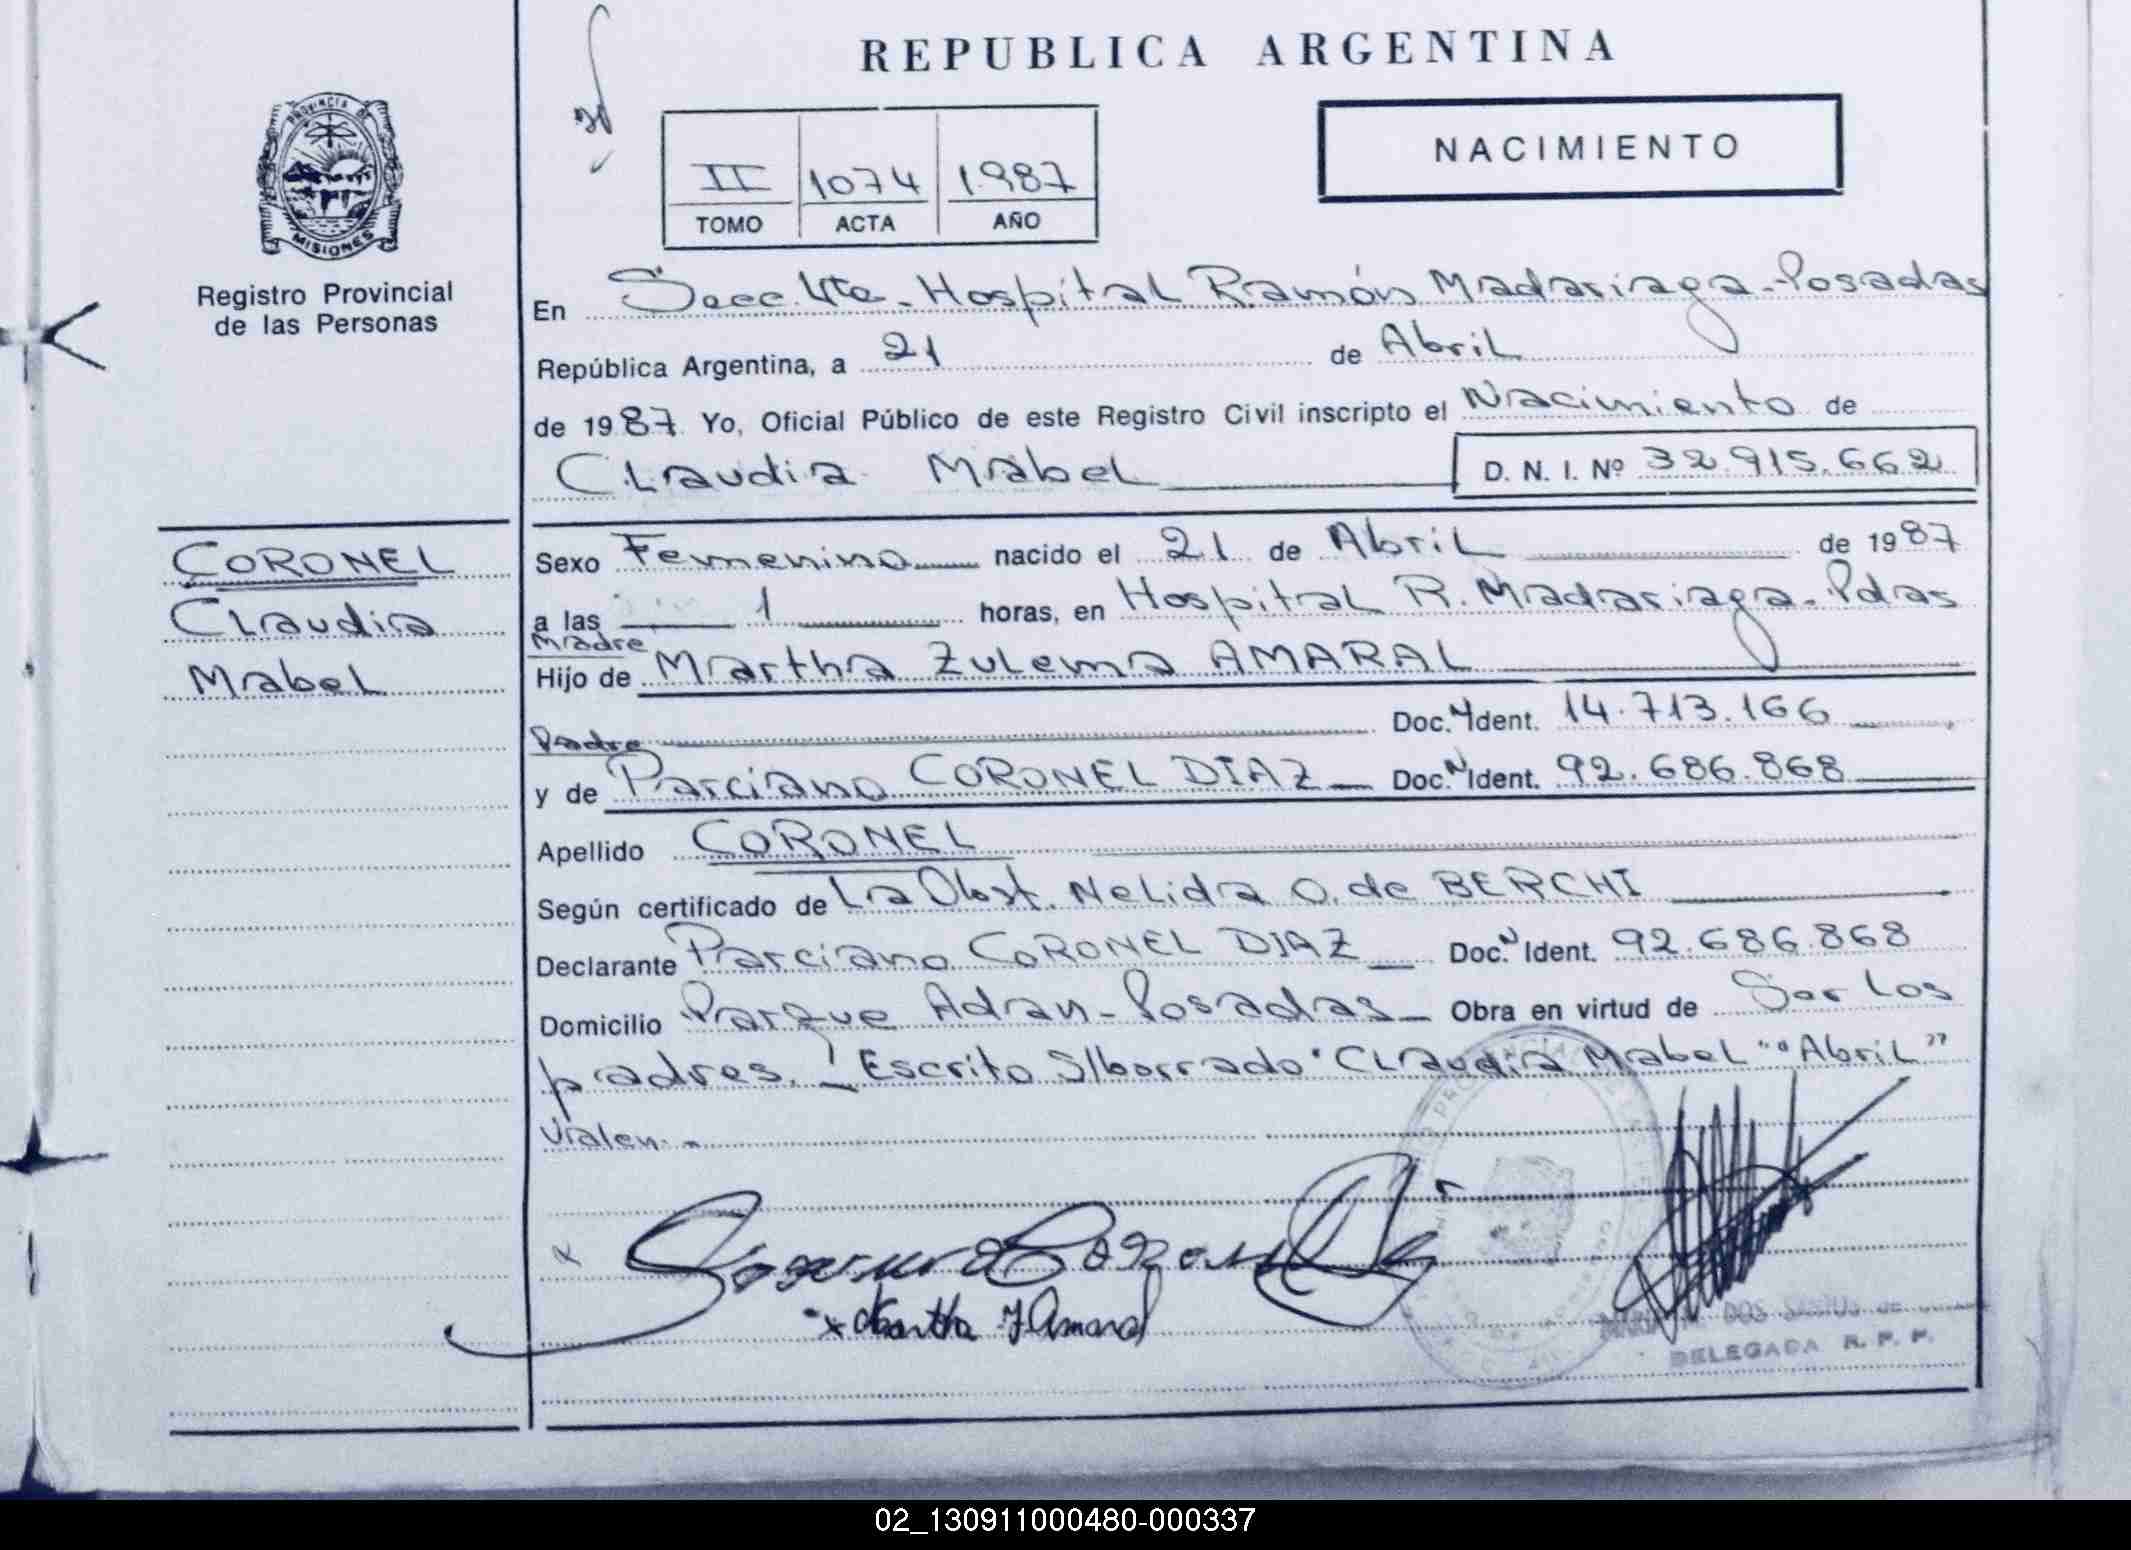 REPUBLICA ARGENTINA
NACIMIENTO
II 1074 1987
TOMO ACTA AÑO
PROVINCIA DE
MISIONES
Registro Provincial
de las Personas
En Secc. 4ta - Hospital Ramón Madariaga - Posadas
República Argentina, a 21 de Abril
de 1987 Yo, Oficial Público de este Registro Civil inscripto el Nacimiento de
Claudia Mabel D. N. I. Nº 32.915.662
CORONEL
Claudia
Mabel
Sexo Femenino nacido el 21 de Abril de 1987
a las 1 horas, en Hospital R. Madariaga - Pdas
Madre
Hijo de Martha Zulema AMARAL
Doc. Ident. 14.713.166
Padre
y de Parciano CORONEL DIAZ Doc. Ident. 92.686.868
Apellido CORONEL
Según certificado de La Obst. Nelida O. de BERCHI
Declarante Parciano CORONEL DIAZ Doc. Ident. 92.686.868
Domicilio Parque Adan - Posadas Obra en virtud de Ser los
padres. Escrito S/borrado "Claudia Mabel" "Abril"
Valen.-
x Martha Z Amaral
DOS SANTOS de
DELEGADA R. P. P.
02_130911000480-000337